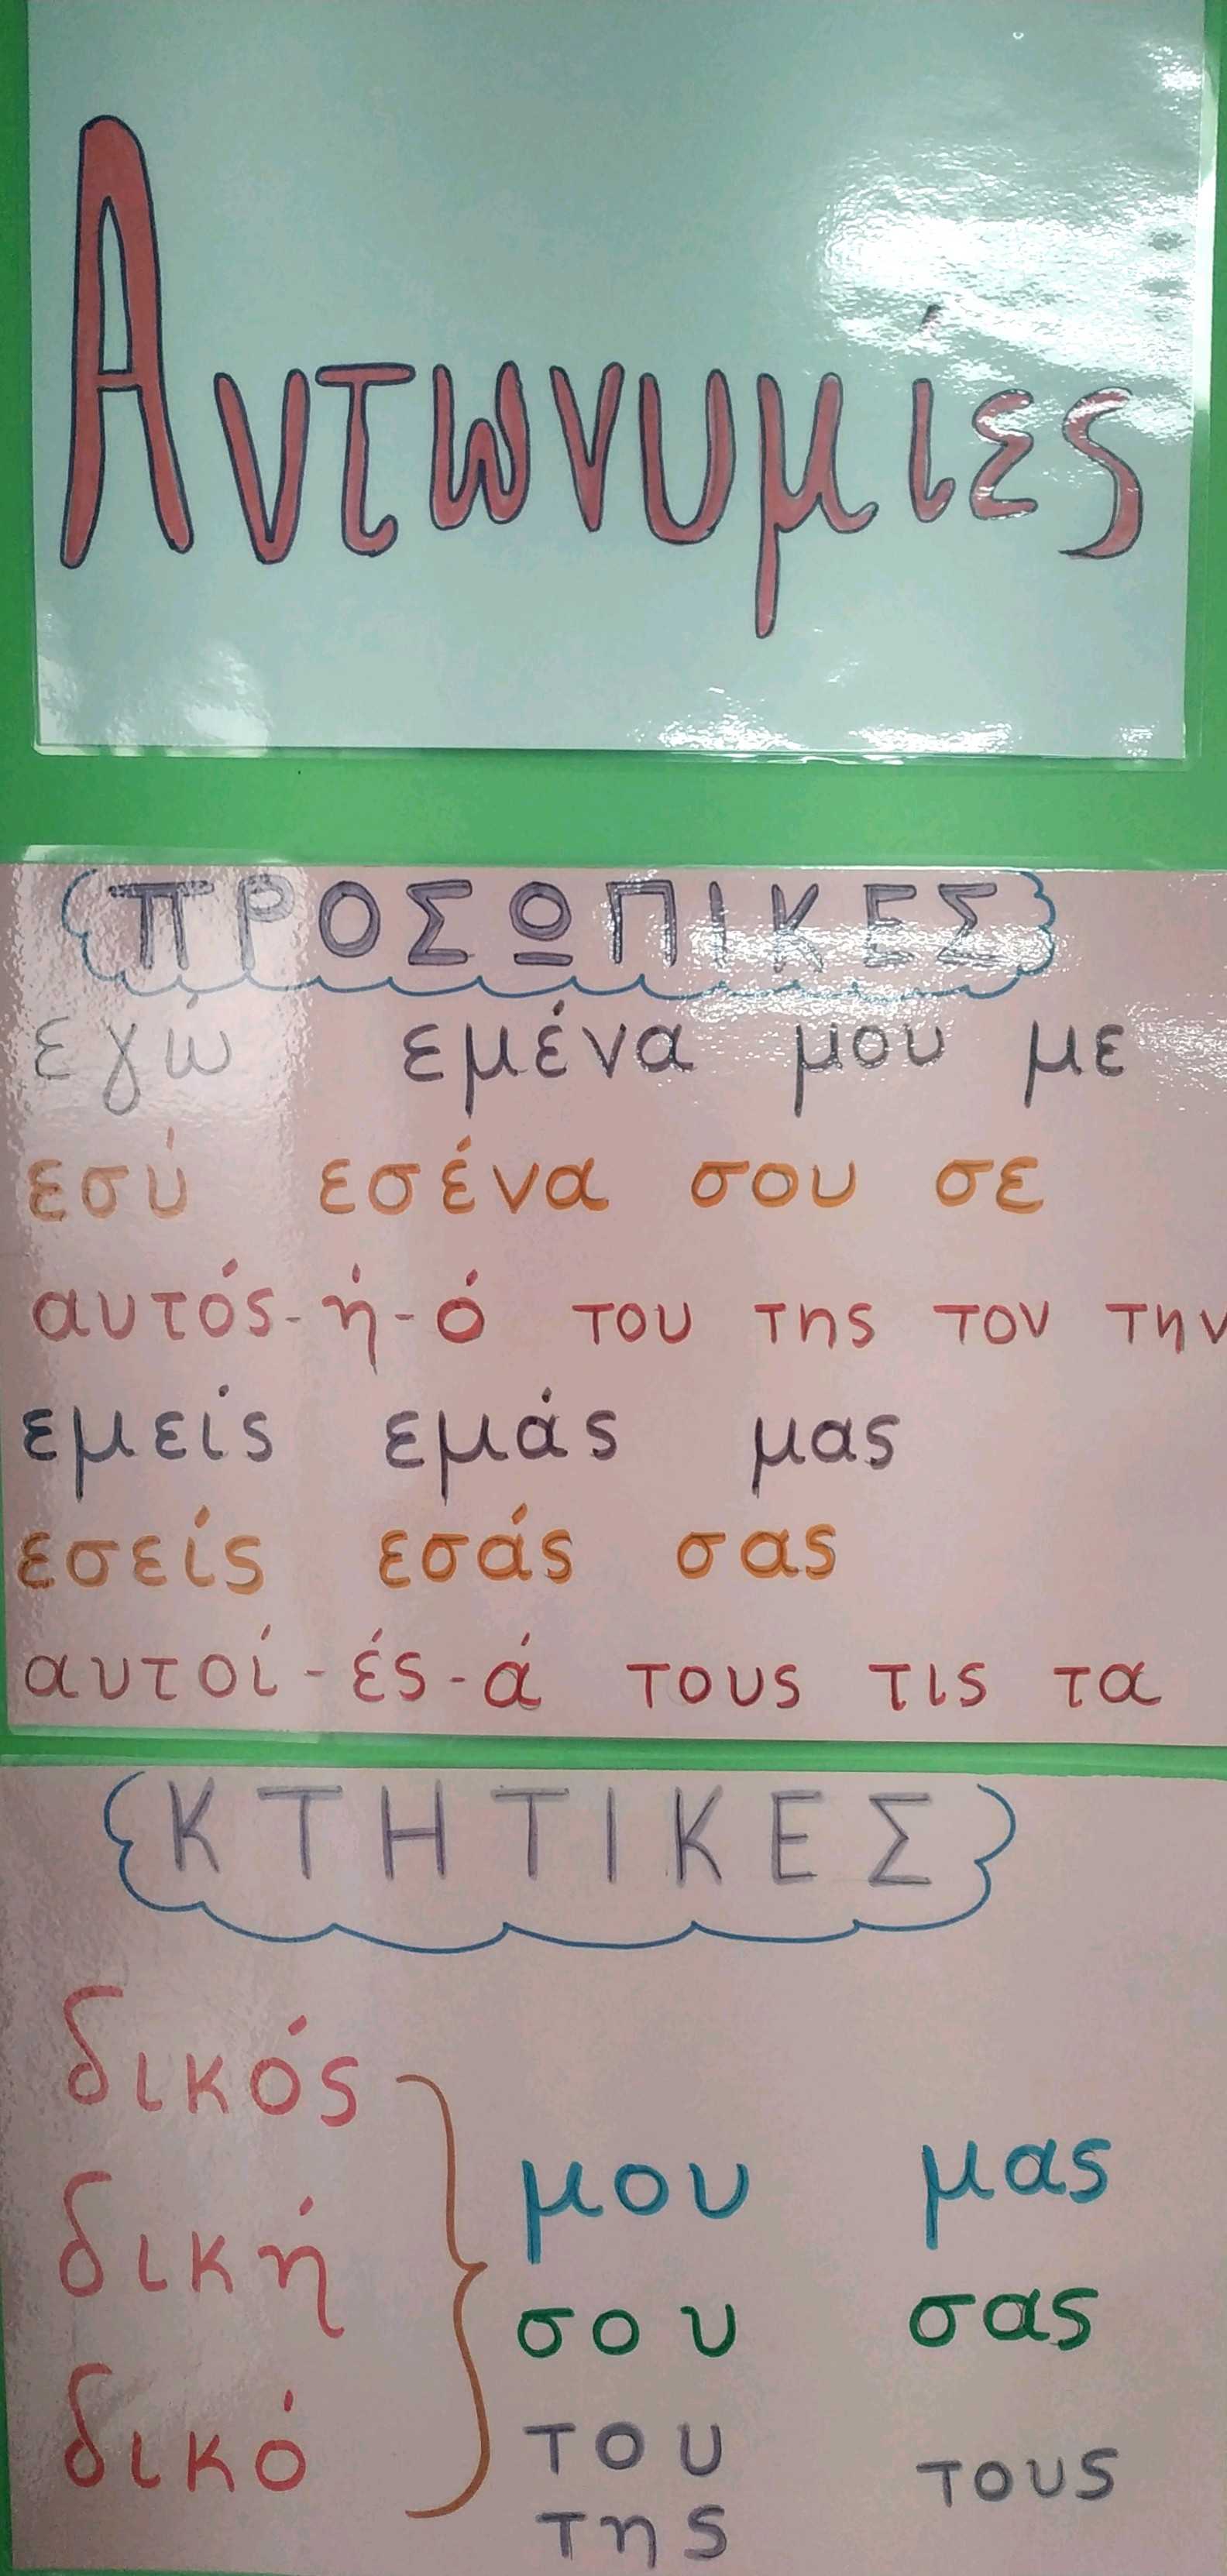 Αντωνυμίες
ΠΡΟΣΩΠΙΚΕΣ
εγώ εμένα μου με
εσύ εσένα σου σε
αυτός-ή-ό του της τον την
εμείς εμάς μας
εσείς εσάς σας
αυτοί-ές-ά τους τις τα
ΚΤΗΤΙΚΕΣ
δικός
δική
δικό
μου μας
σου σας
του τους
της